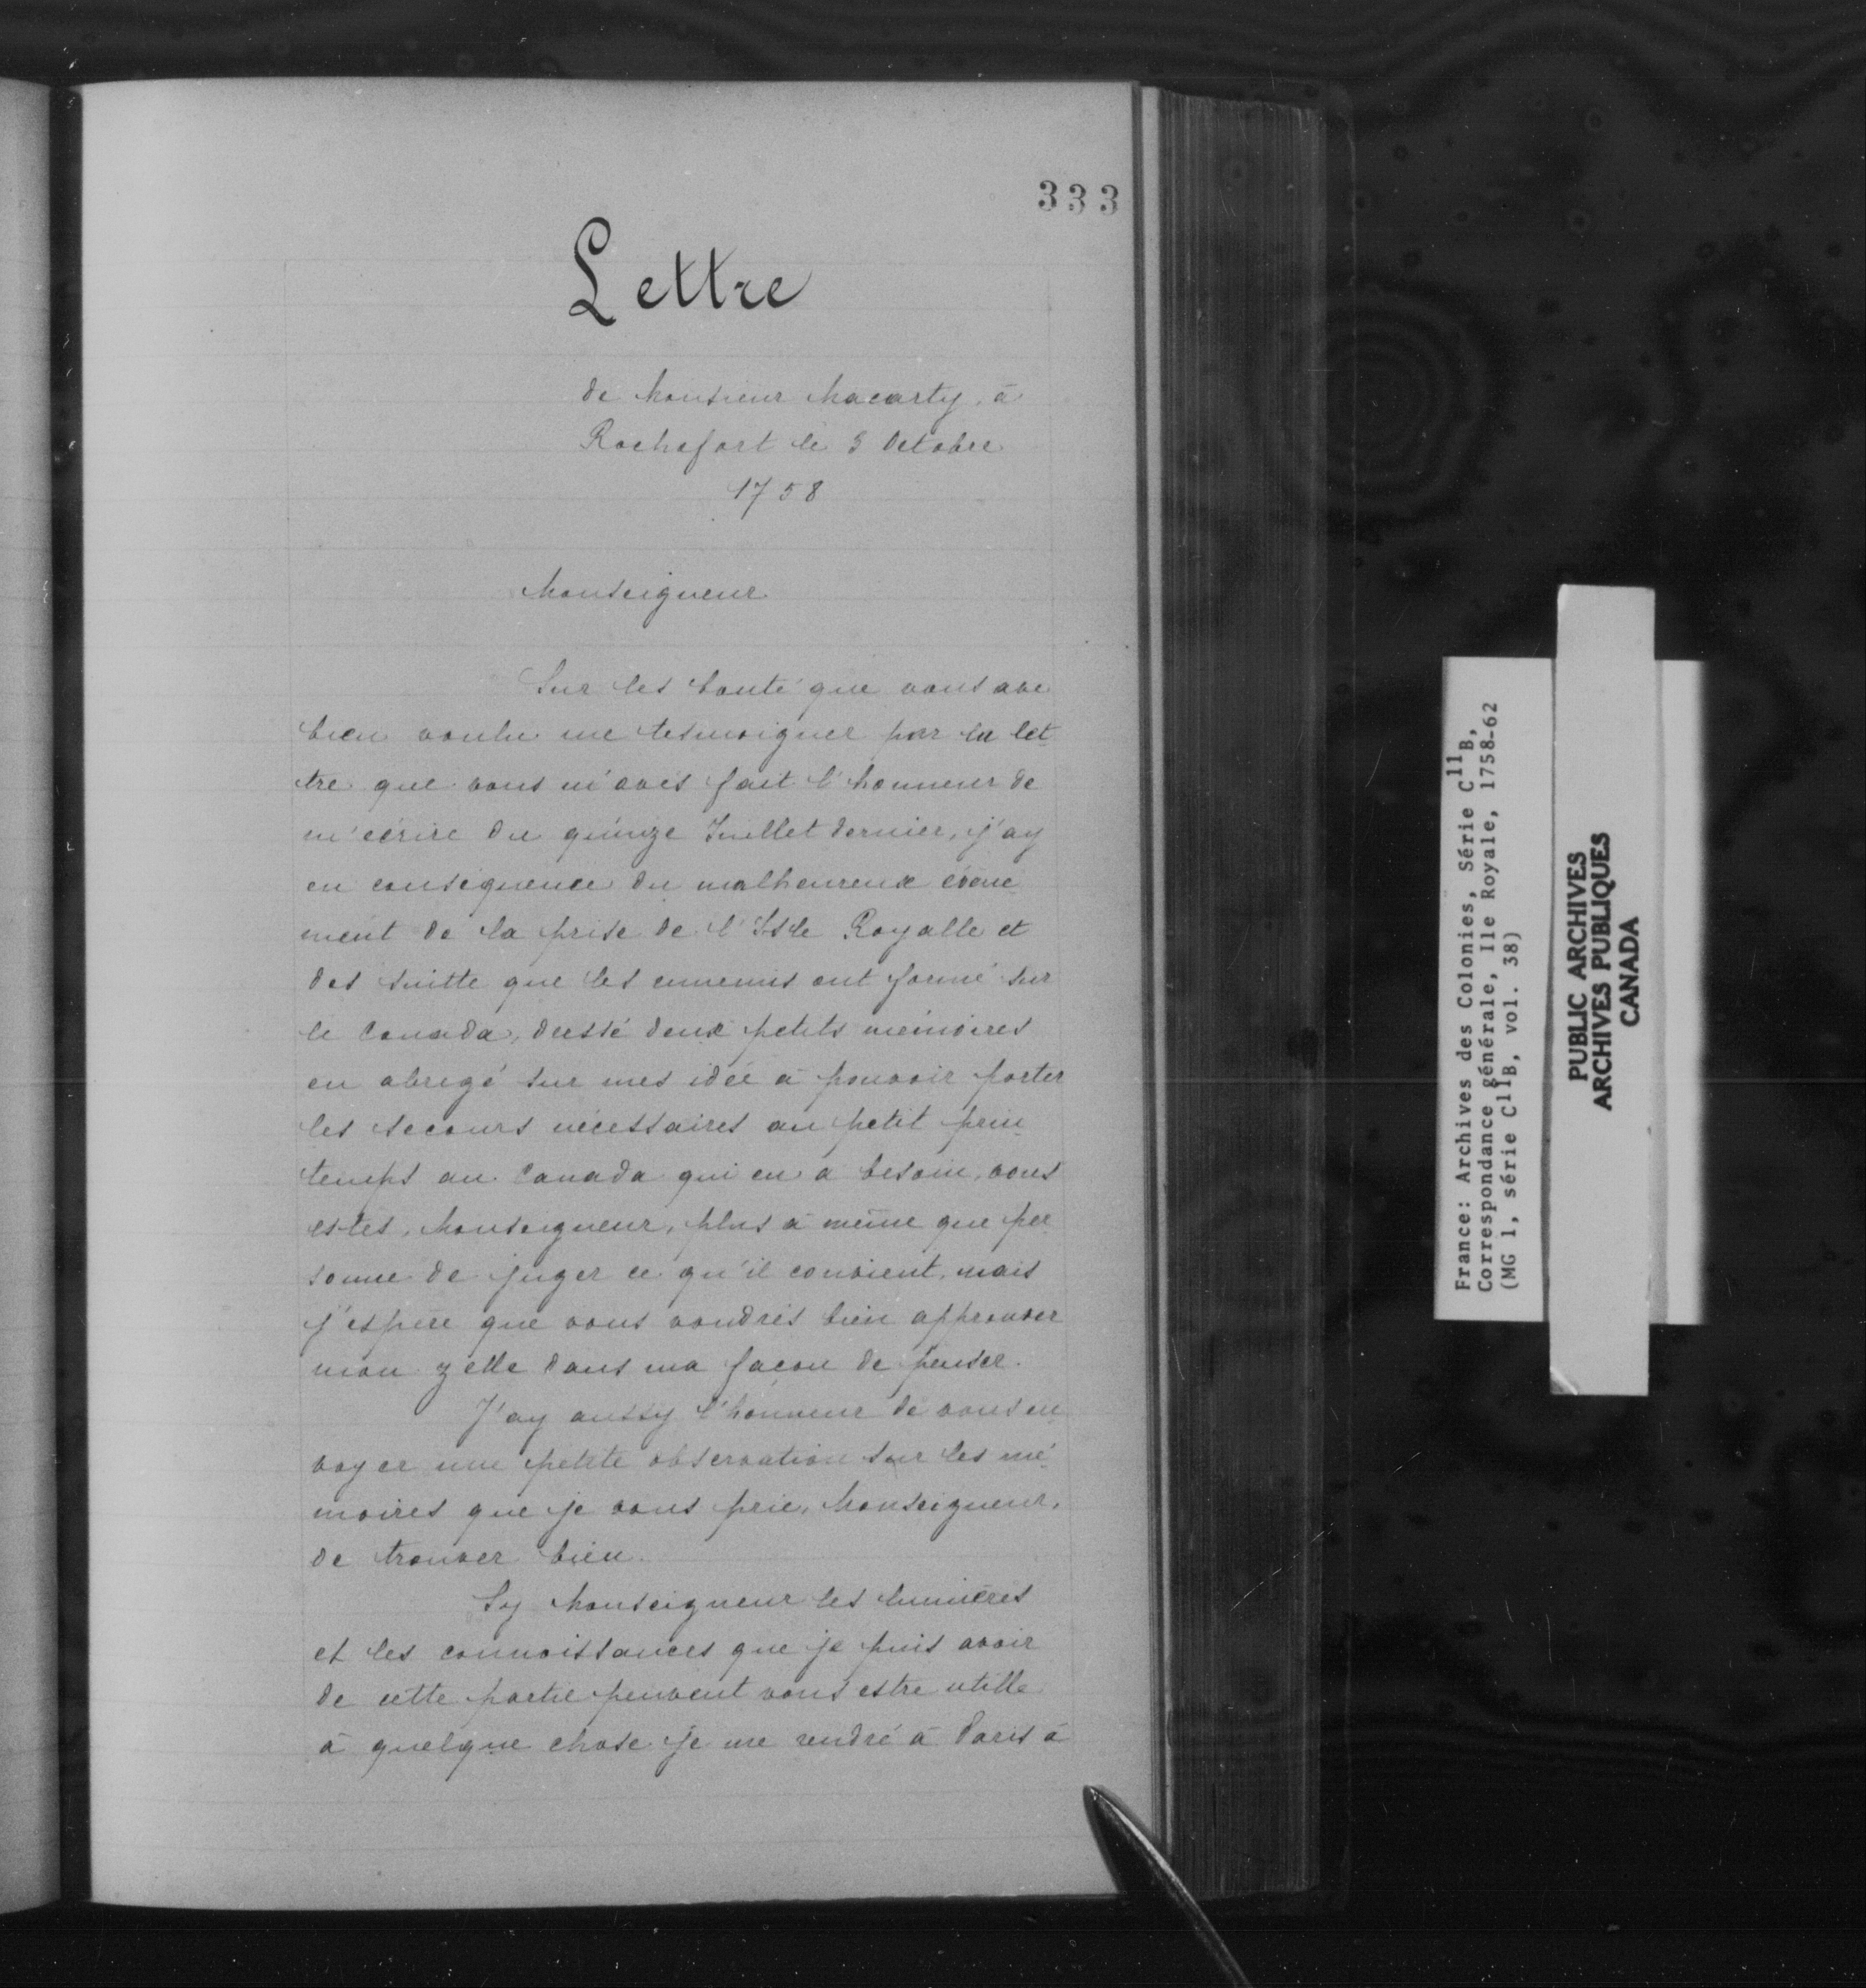 333
Lettre
de Monsieur Macarty, à
Rochefort le 3 Octobre
1758
Monseigneur
Sur les bonté que vous ave
bien voulu me tesmoigner par la let
tre que vous m'avés fait l'honneur de
m'écrire du quinze Juillet dernier, j'ay
en conséquence du malheureux évène
ment de la prise de l'Isle Royalle et
des suitte que les ennemis ont formé sur
le Canada, dressé deux petits mémoires
en abrégé sur mes idée à pouvoir porter
les secours nécessaires au petit prin
temps au Canada qui en a besoin, vous
estes, Monseigneur, plus à même que per
sonne de juger ce qu'il convient, mais
j'espère que vous voudrés bien approuver
mon zelle dans ma façon de penser.
J'ay aussy l'honneur de vous en
voyer une petite observation sur les mé
moires que je vous prie, Monseigneur,
de trouver bien.
Sy Monseigneur les lumières
et les connoissances que je puis avoir
de cette partie peuvent vous estre utille
à quelque chose je me rendré à Paris à
France: Archives des Colonies, Série C11B,
Correspondance générale, Ile Royale, 1758-62
(MG 1, série C11B, vol. 38)
PUBLIC ARCHIVES
ARCHIVES PUBLIQUES
CANADA